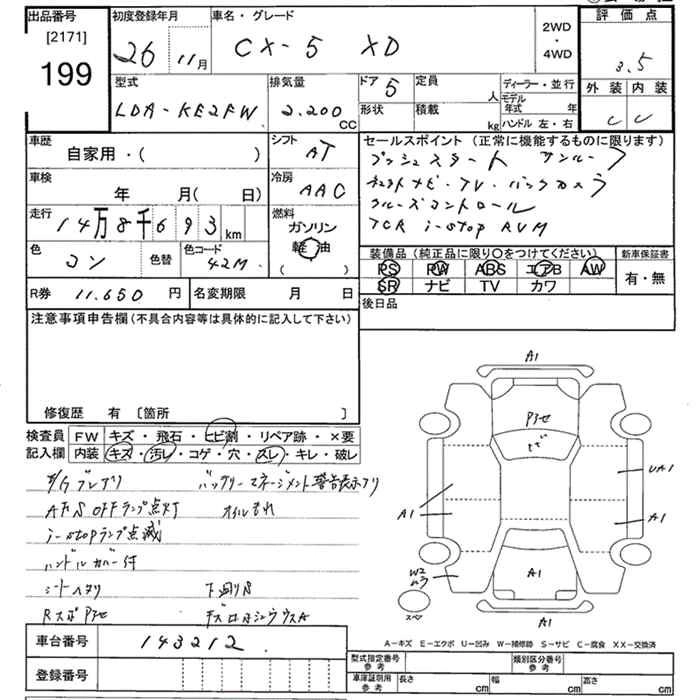 出品番号
[2171]
199
初度登録年月
26 11月
車名・グレード
CX-5 XD
2WD
・
4WD
評価点
3.5
外装 内装
C C
型式
LDA-KE2FW
排気量
2.200 CC
ドア 5
定員 人
形状
積載 kg
ディーラー・並行
モデル年式 年
ハンドル 左・右
車歴
自家用・( )
シフト
AT
車検
年 月( 日)
冷房
AAC
走行
14万8千693 km
燃料
ガソリン
軽油
( )
色
コン
色替
色コード
42M
セールスポイント (正常に機能するものに限ります)
プッシュスタート サンルーフ
ナビ・TV・バックカメラ
クルーズコントロール
i-stop AVM
装備品 (純正品に限り○をつけてください)
PS PW ABS エアB AW
SR ナビ TV カワ
新車保証書
有・無
後日品
R券 11.650 円
名変期限 月 日
注意事項申告欄 (不具合内容等は具体的に記入して下さい)
修復歴 有 [箇所 ]
検査員
記入欄
FW キズ・飛石・ヒビ割・リペア跡・×要
内装 キズ・汚レ・コゲ・穴・スレ・キレ・破レ
バッテリーマネージメント警告表示アリ
AFS OFFランプ点灯 オイルもれ
i-stopランプ点滅
ハンドルカバー付
シートヘタリ 下廻りS
車台番号 143212
登録番号
A1
P7セ
ヒビ
A1
UA1
A1
W2
A1
スペア
A1
A-キズ E-エクボ U-凹み W-補修跡 S-サビ C-腐食 XX-交換済
型式指定番号
参考
類別区分番号
参考
車庫証明用
参考
長さ cm 幅 cm 高さ cm